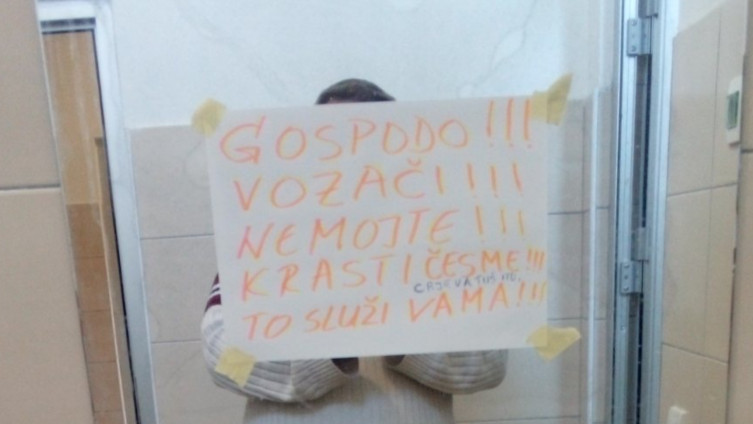 GOSPODO!!!
VOZAČI!!!
NEMOJTE!!!
KRASTI ČESME!!!
TO SLUŽI VAMA!!!